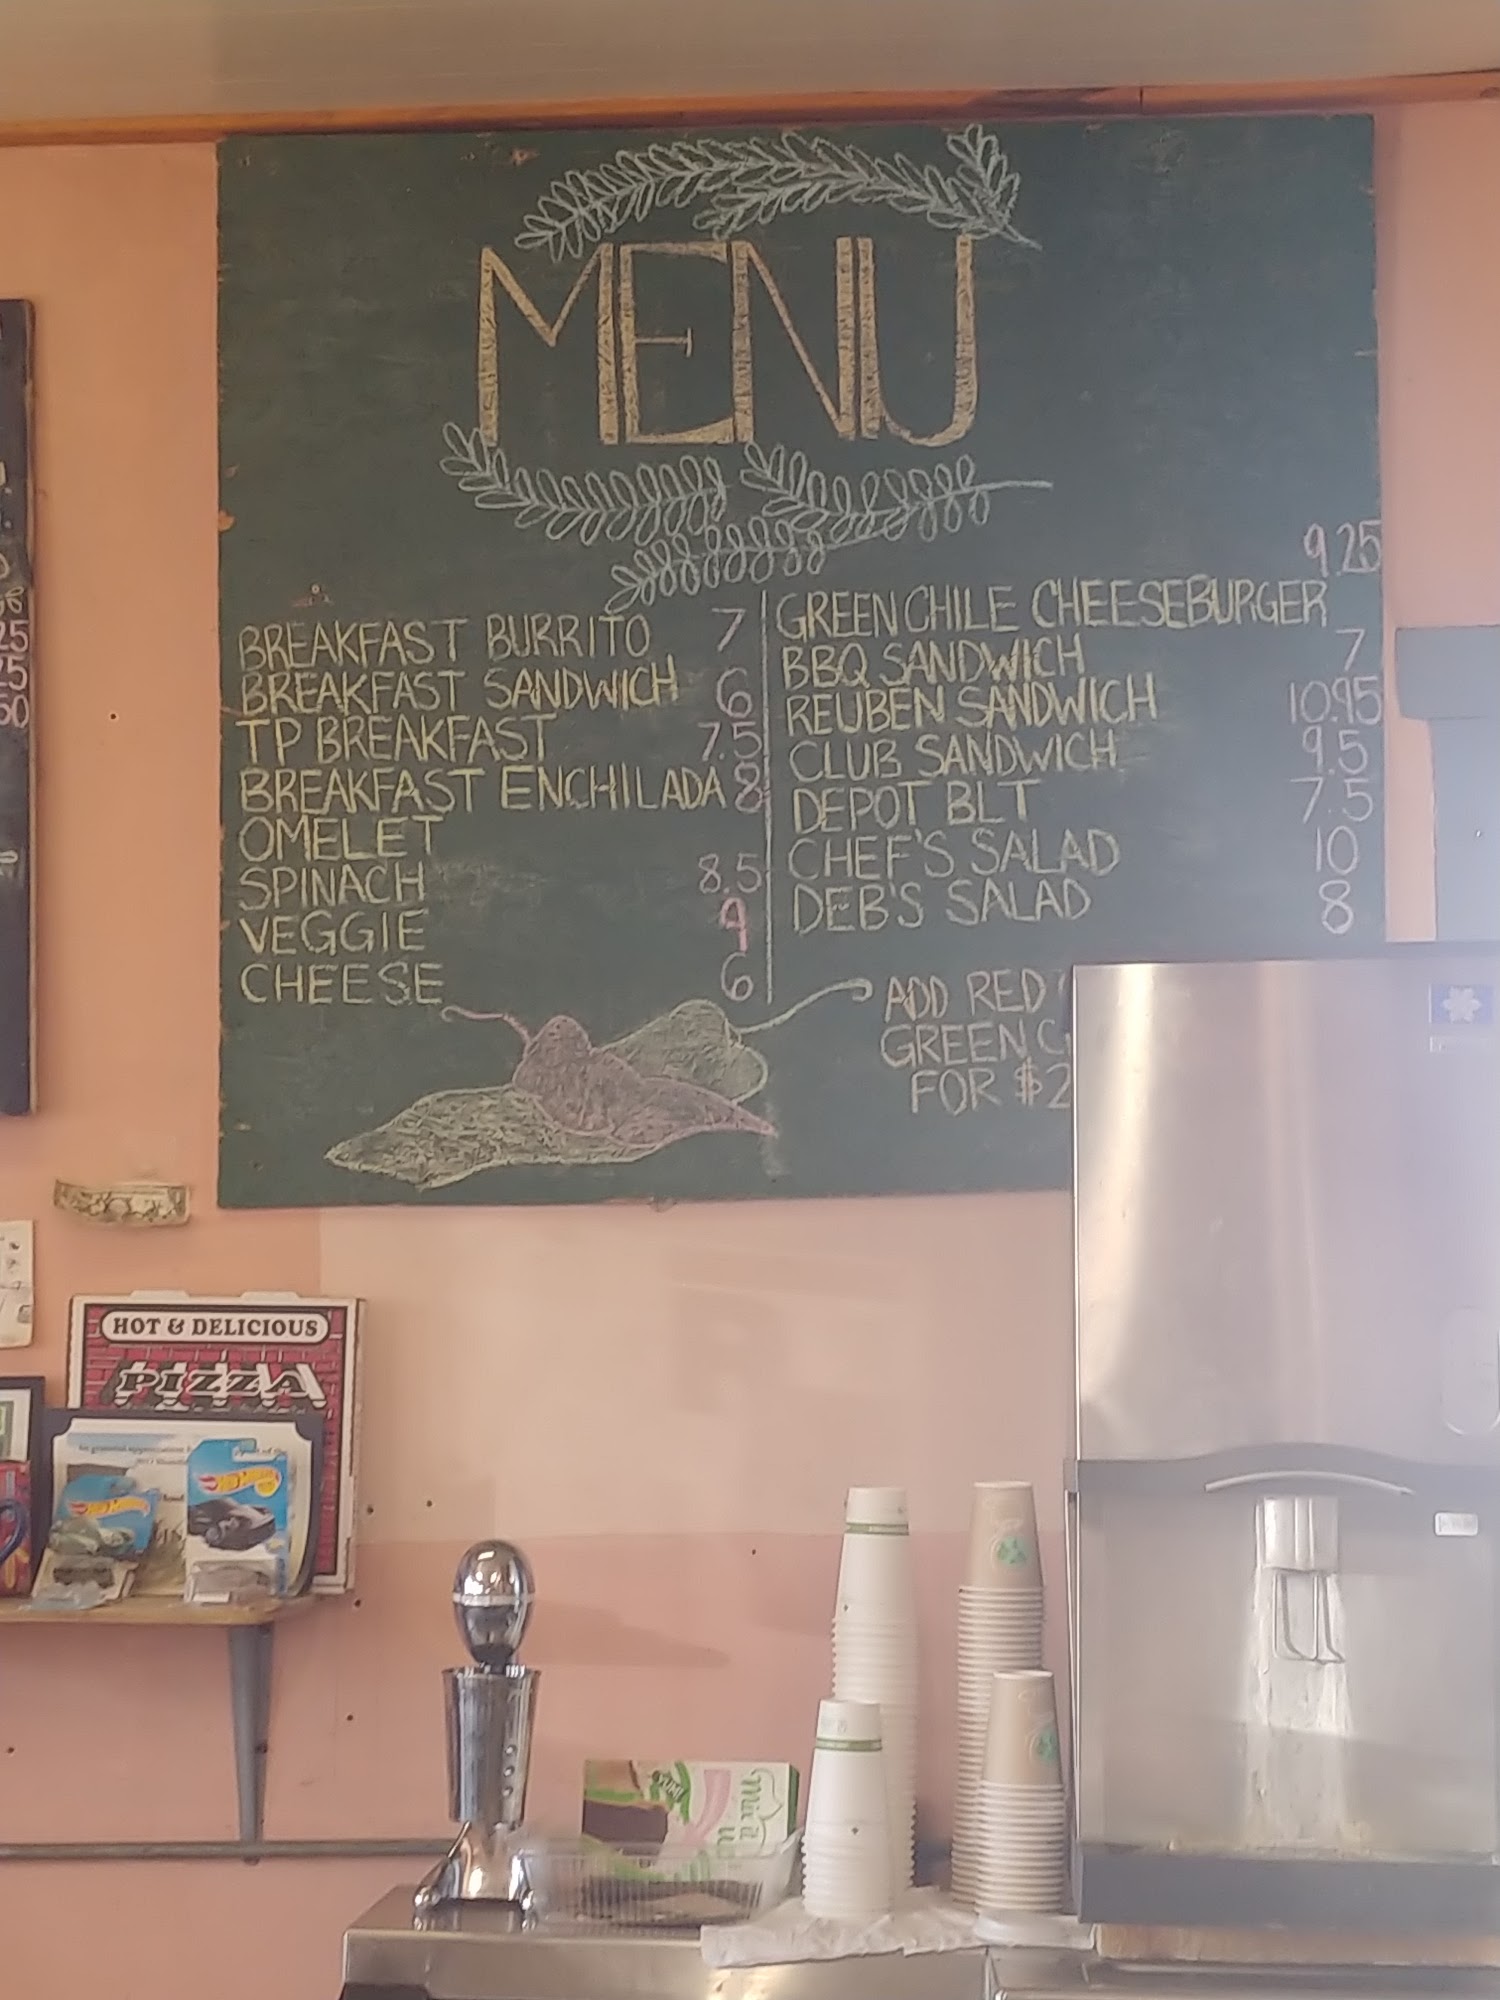 MENU
BREAKFAST BURRITO 7
BREAKFAST SANDWICH 6
TP BREAKFAST 7.5
BREAKFAST ENCHILADA 8
OMELET
SPINACH 8.5
VEGGIE 9
CHEESE 6
9.25
GREEN CHILE CHEESEBURGER
BBQ SANDWICH 7
REUBEN SANDWICH 10.95
CLUB SANDWICH 9.5
DEPOT BLT 7.5
CHEF'S SALAD 10
DEB'S SALAD 8
ADD RED
GREEN C
FOR $2
25
50
HOT & DELICIOUS
PIZZA
Hot Wheels
Hot Wheels
Mix it